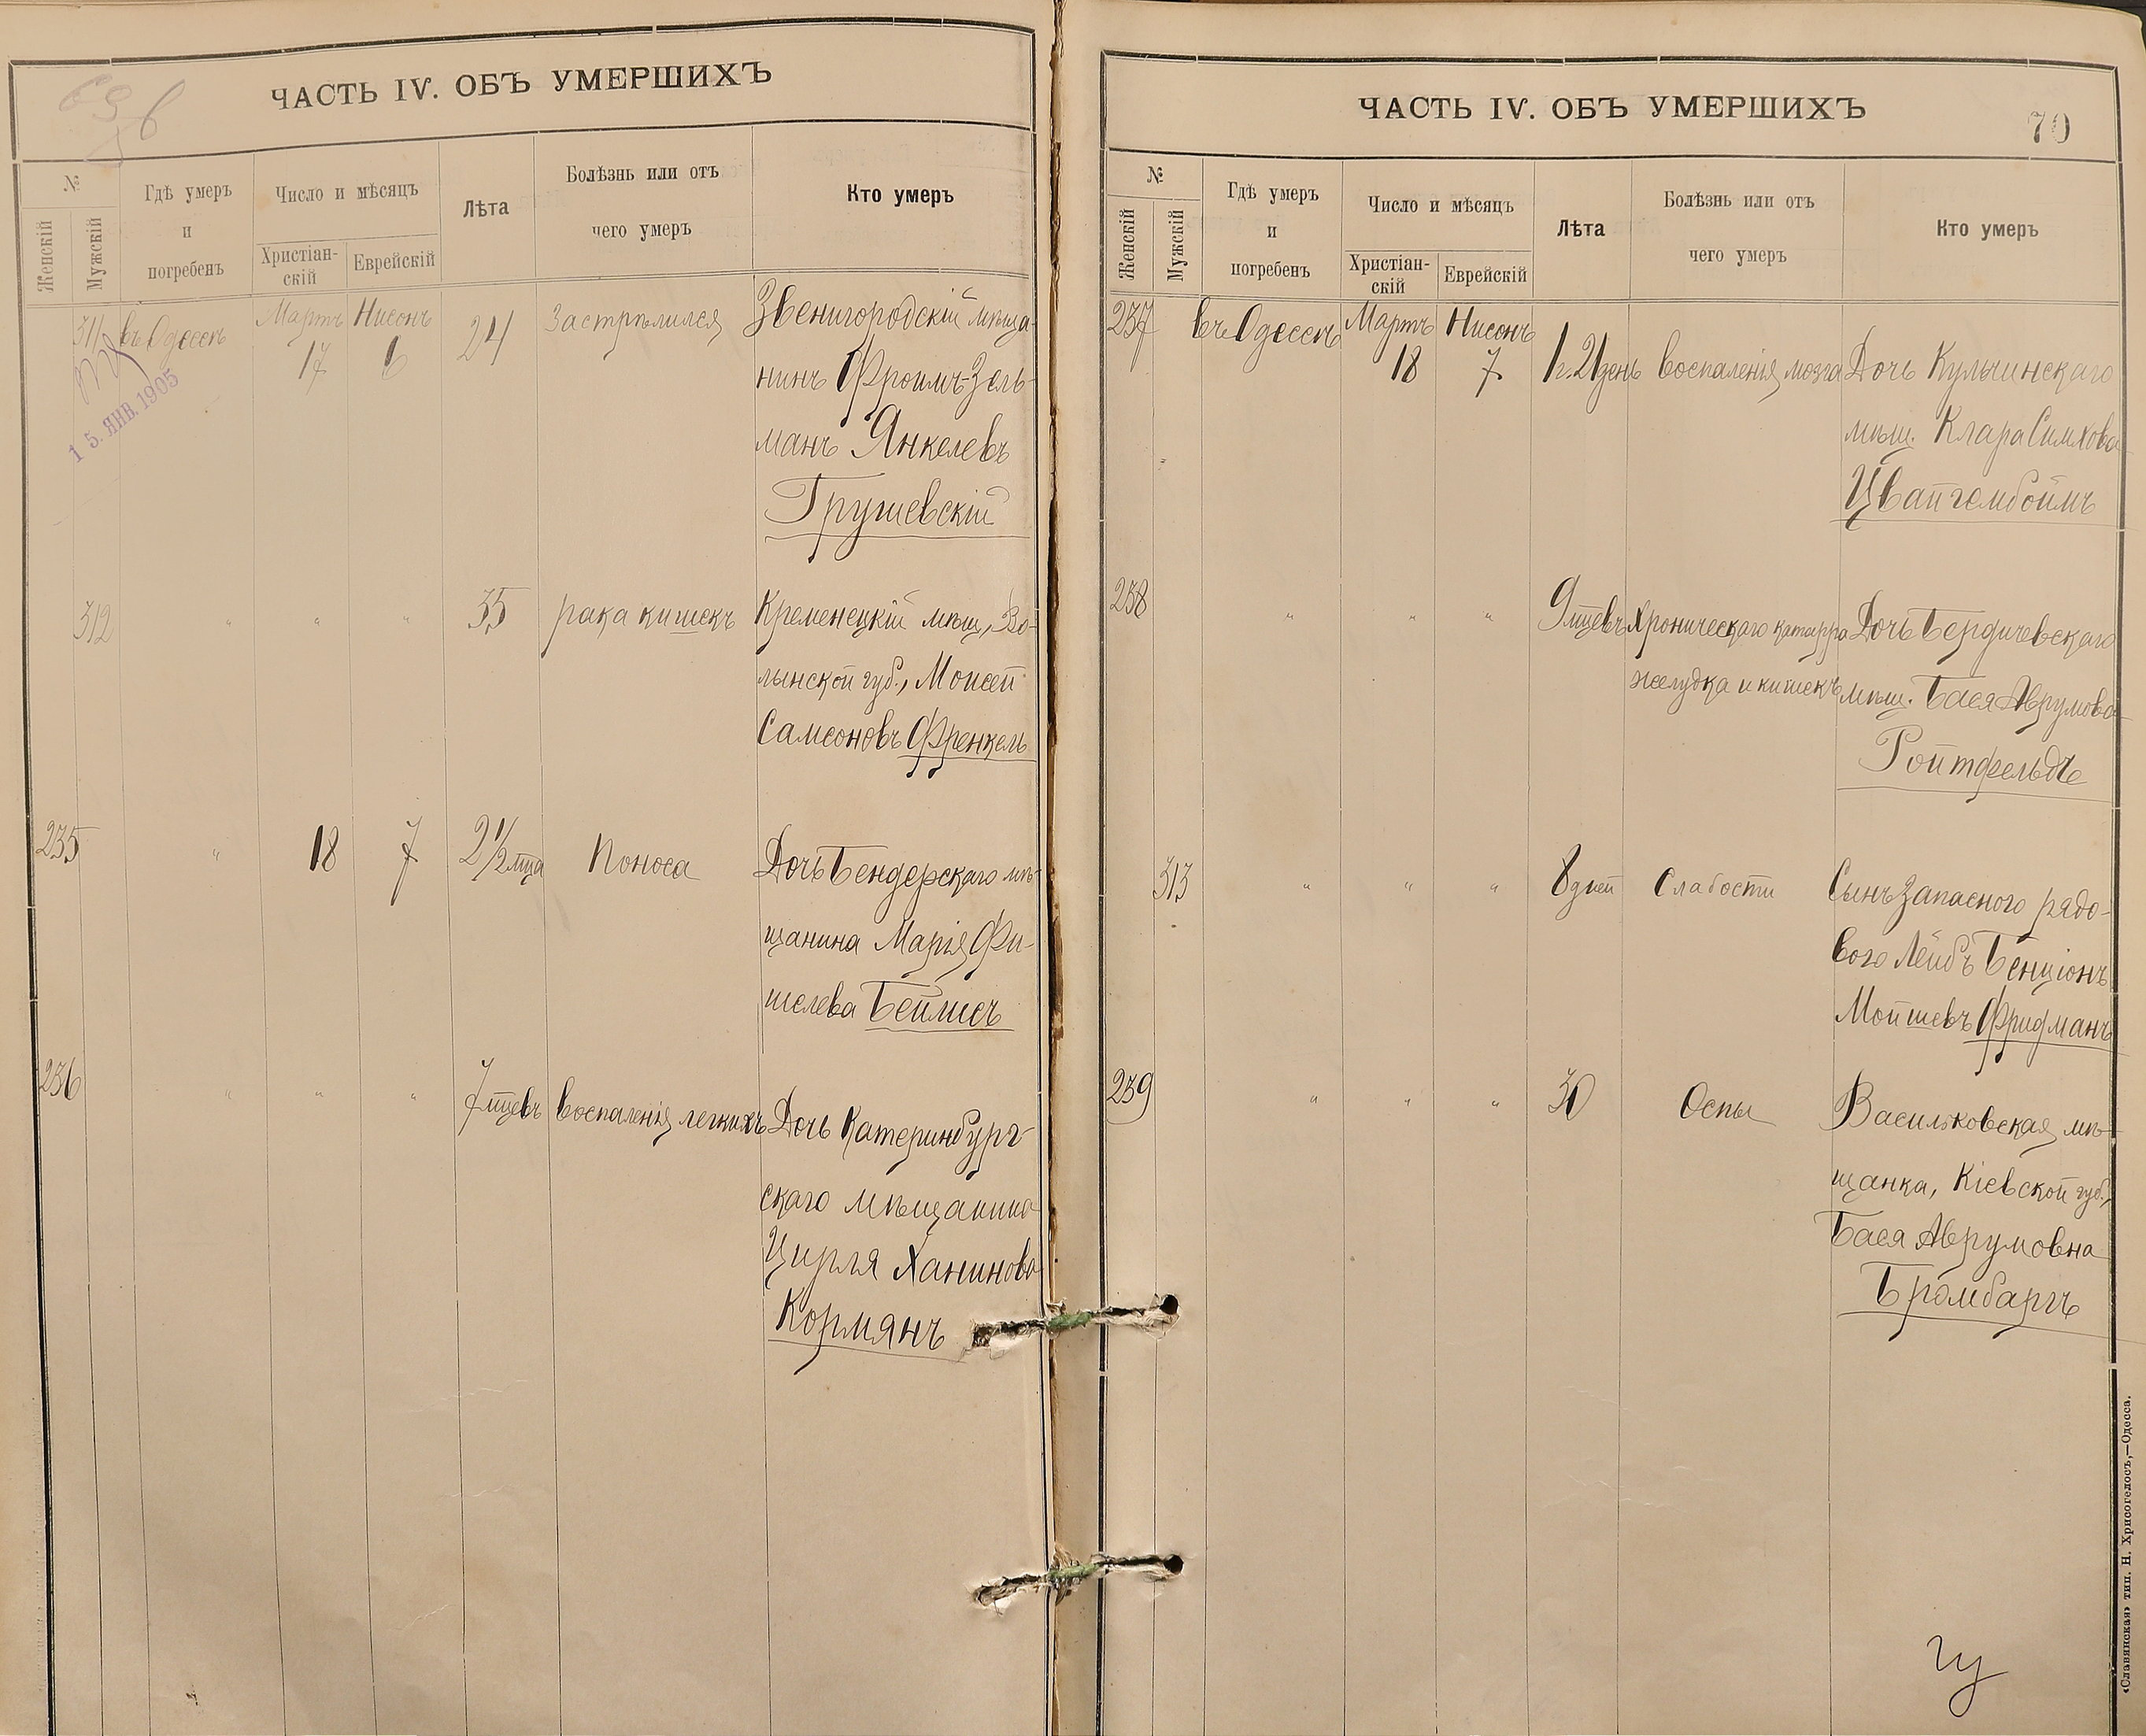 ЧАСТЬ IV. ОБЪ УМЕРШИХЪ
№
Женскій
Мужскій
Гдѣ умеръ
и
погребенъ
Число и мѣсяцъ
Христіан-
скій
Еврейскій
Лѣта
Болѣзнь или отъ
чего умеръ
Кто умеръ
311 въ Одессѣ Мартъ Нисонъ 24 Застрѣлился Звенигородскій мѣща-
17 6 нинъ Фроимъ-Зель-
15. ЯНВ. 1905
манъ Янкелевъ
Грушевскій
312 " " " 35 рака кишекъ Кременецкій мѣщ., Во-
лынской губ., Моисей
Самсоновъ Френкель
235 " 18 7 2 1/2 мца Поноса Дочь Бендерскаго мѣ-
щанина Марія Фи-
шелева Бейлисъ
236 " " " 7 мцевъ воспаленія легкихъ Дочь Катеринбург-
скаго мѣщанина
Цирля Ханинова
Кормянъ
ЧАСТЬ IV. ОБЪ УМЕРШИХЪ
70
№
Женскій
Мужскій
Гдѣ умеръ
и
погребенъ
Число и мѣсяцъ
Христіан-
скій
Еврейскій
Лѣта
Болѣзнь или отъ
чего умеръ
Кто умеръ
237 въ Одессѣ Мартъ Нисонъ
18 7 1 г. 21 день воспаленія мозга Дочь Кульчинскаго
мѣщ. Клара Симхова
Цвайгембоймъ
238 " " " 9 мцевъ Хроническаго катарра Дочь Бердичевскаго
желудка и кишекъ мѣщ. Бася Аврумова
Ройтфельдъ
313 " " " 8 дней Слабости Сынъ запасного рядо-
вого Лейбъ Бенціонъ
Мойшевъ Фридманъ
239 " " " 30 Оспы Васильковская мѣ-
щанка, Кіевской губ.,
Бася Аврумовна
Бромбаргъ
«Славянская» тип. Н. Хрисогелосъ,—Одесса.